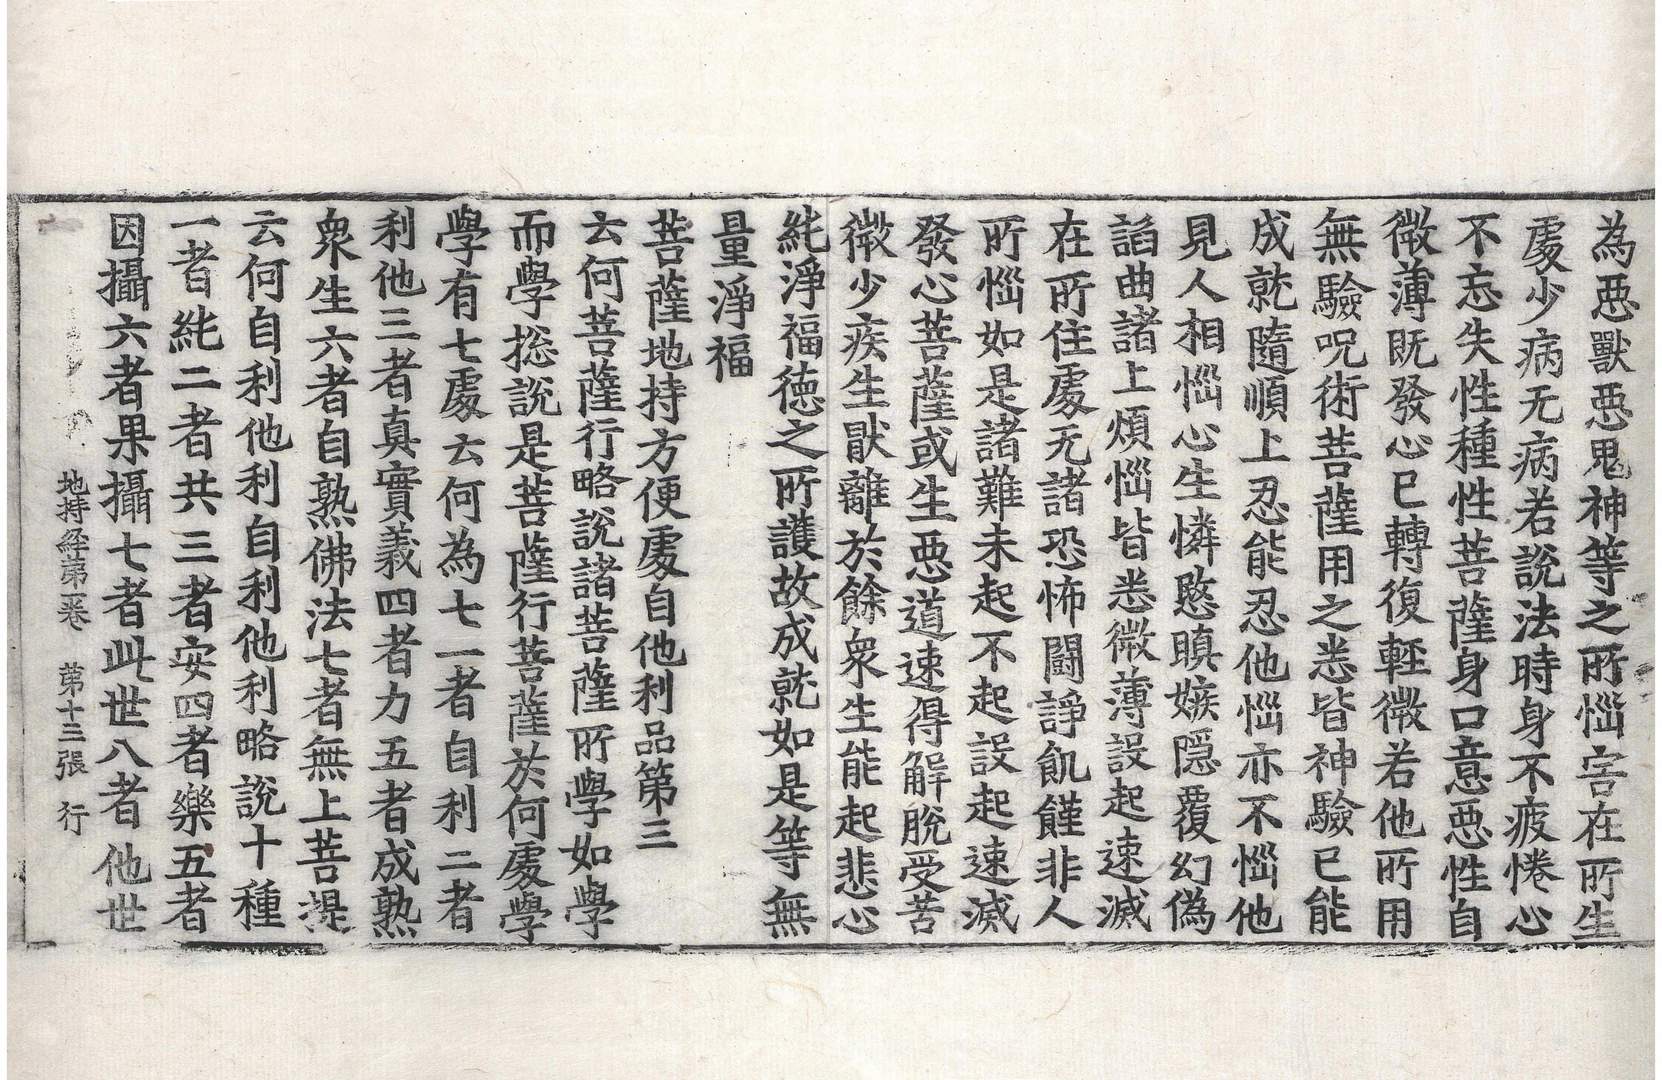 為惡獸惡鬼神等之所惱害在所生
處少病无病若說法時身不疲惓心
不忘失性種性菩薩身口意惡性自
微薄既發心已轉復輕微若他所用
無驗呪術菩薩用之悉皆神驗已能
成就隨順上忍能忍他惱亦不惱他
見人相惱心生憐愍瞋嫉隱覆幻偽
諂曲諸上煩惱皆悉微薄設起速滅
在所住處无諸恐怖鬪諍飢饉非人
所惱如是諸難未起不起設起速滅
發心菩薩或生惡道速得解脫受苦
微少疾生猒離於餘衆生能起悲心
純淨福德之所護故成就如是等無
量淨福
菩薩地持方便處自他利品第三
云何菩薩行略說諸菩薩所學如學
而學捴說是菩薩行菩薩於何處學
學有七處云何為七一者自利二者
利他三者真實義四者力五者成熟
衆生六者自熟佛法七者無上菩提
云何自利他利自利他利略說十種
一者純二者共三者安四者樂五者
因攝六者果攝七者此世八者他世
地持経第一卷 第十三張 行